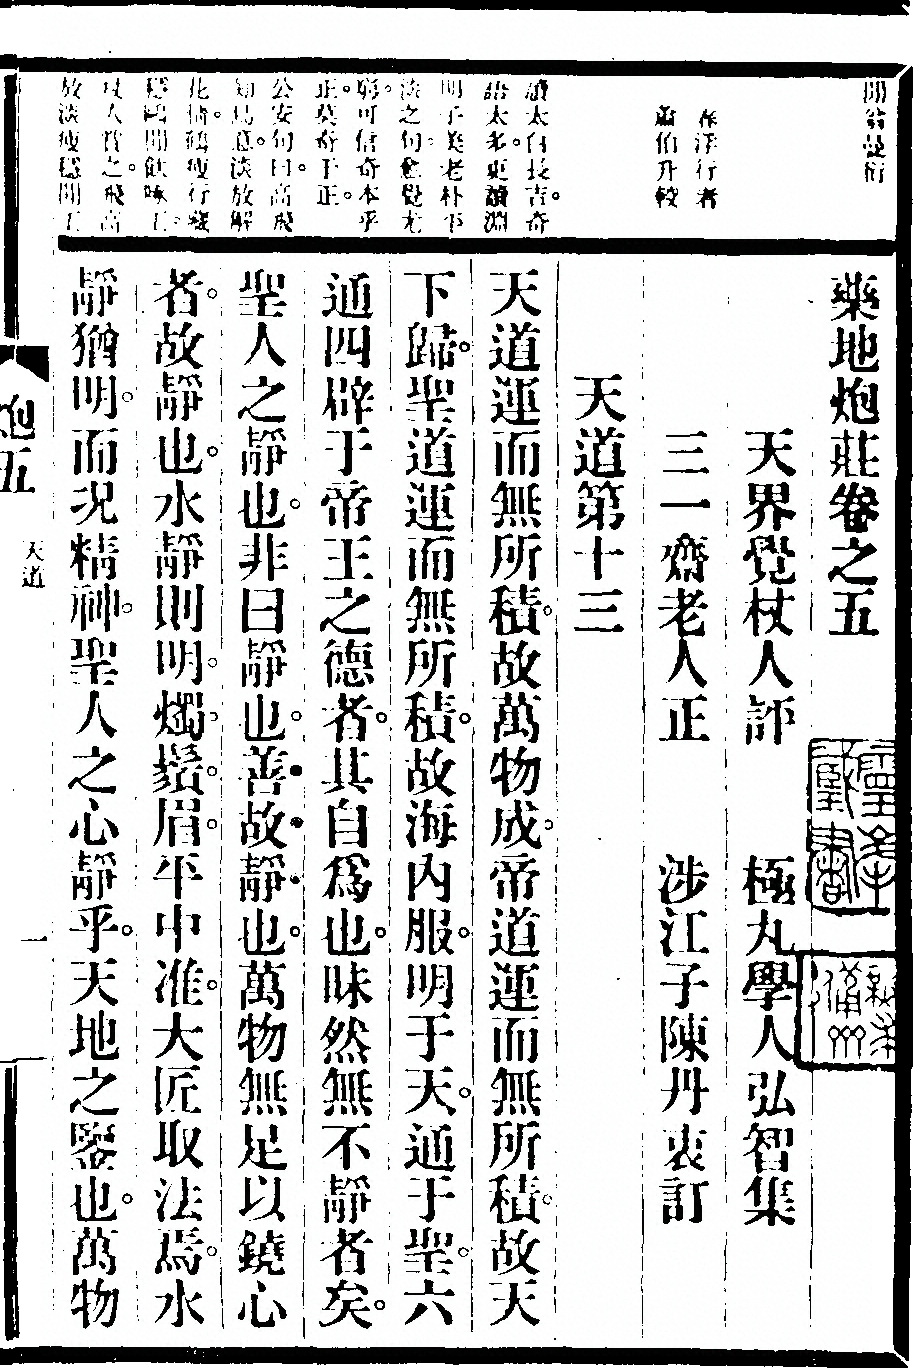 藥地炮莊卷之五
天界覺杖人評　極丸學人弘智集
三一齋老人正　涉江子陳丹衷訂
天道第十三
天道運而無所積。故萬物成。帝道運而無所積。故天
下歸。聖道運而無所積。故海內服。明于天。通于聖。六
通四辟于帝王之德者。其自爲也。昧然無不靜者矣。
聖人之靜也。非曰靜也。善故靜也。萬物無足以鐃心
者。故靜也。水靜則明。燭鬚眉。平中准。大匠取法焉。水
靜猶明。而況精神。聖人之心靜乎。天地之鑒也。萬物
閒翁曼衍
春浮行者
蕭伯升較
讀太白長吉奇
語太多。更讀淵
明子美老朴平
淡之句。愈覺尤
窮可信奇本乎
正。莫奇于正。
公安句曰。高飛
知鳥意。淡放解
花情。鶴瘦行藏
穩。鷗閒飲啄工。
杖人賞之。飛高
放淡瘦穩閒工
炮五
天道
一